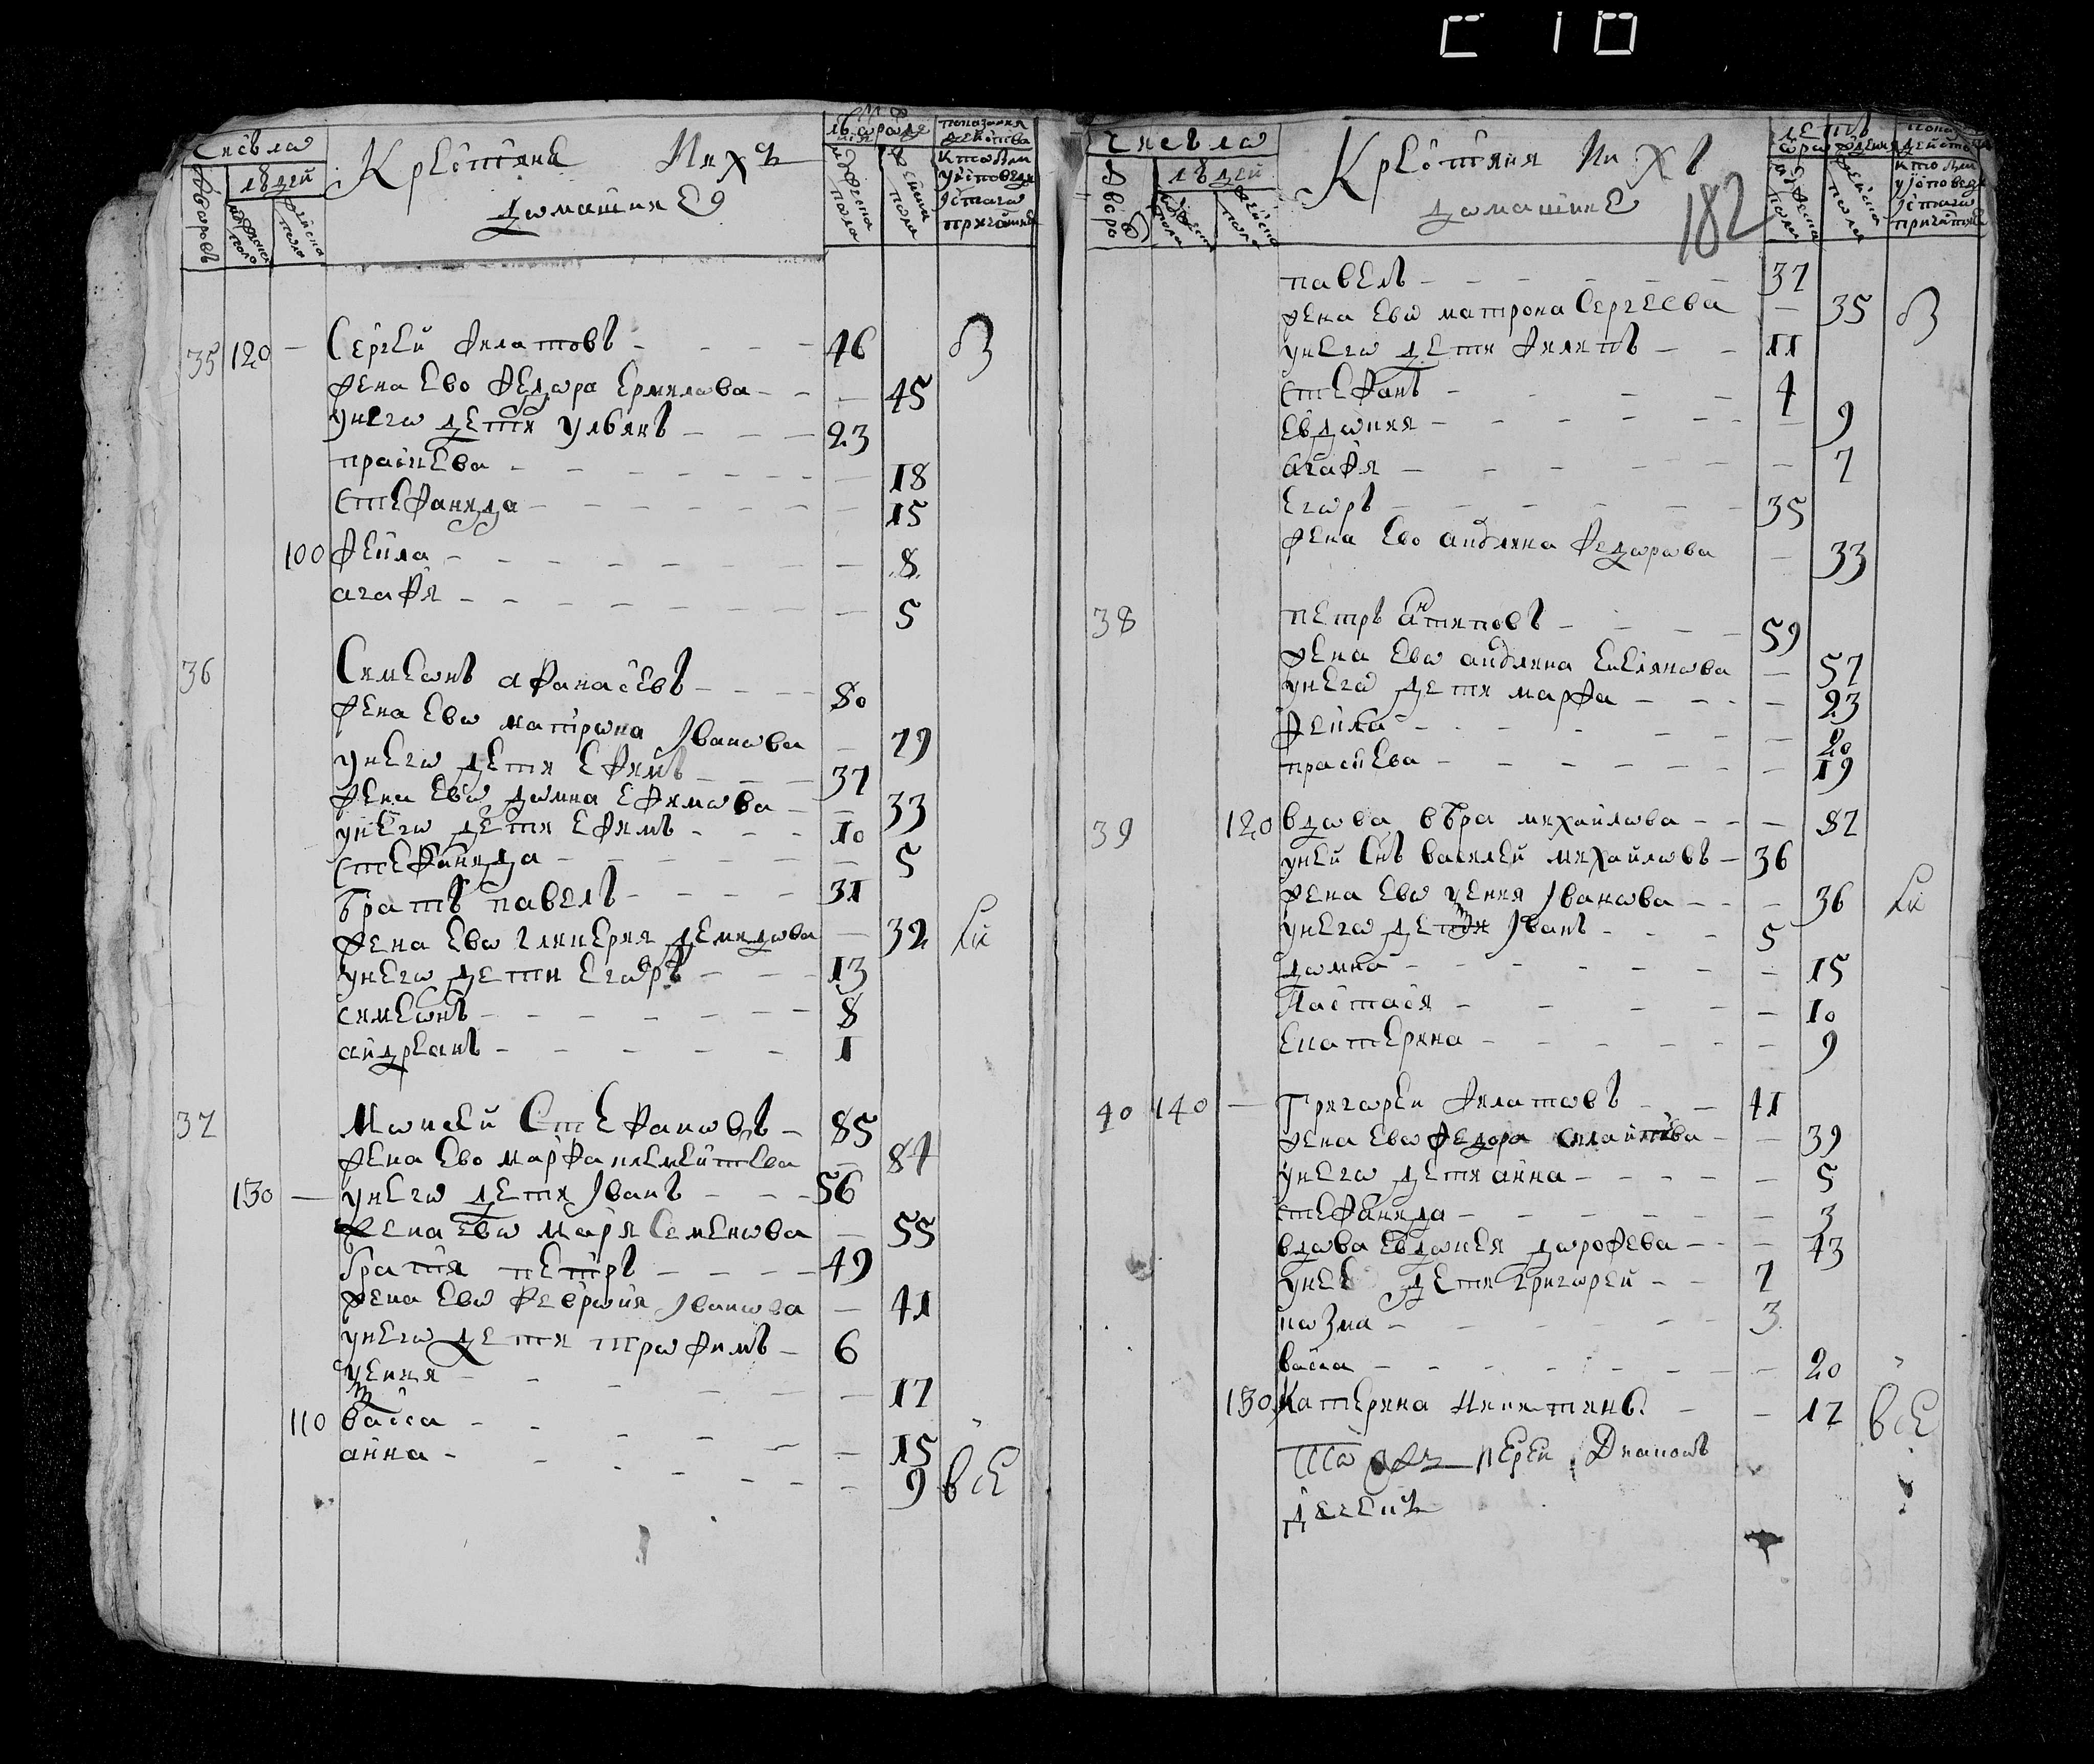 Числа
Крестяне Ихъ
домашние
дворовъ
людей
мужеска пола
женска пола
показания действа
кто был
у исповеди
35 120 — Сергей Филатовъ 46
жена Ево Федора Ермилова 45
у него дети Ульянъ 23
праскева 18
стефанида 15
100 Фекла 8
агафя 5
36 Симеонъ афанасевъ 80
жена Ево матрона Иванова 79
у него дети Ефимъ 37
жена Ево домна Ефимова 33
у него дети Ефимъ 10
стефанида 5
братъ павелъ 31
жена Ево гликерия демидова 32
у него дети Егоръ 13
симеонъ 8
андреанъ 1
37 Мокей Стефановъ 85
жена Ево марфа климентева 84
130 — у него дети Иванъ 56
жена Ево маря Семенова 55
братя петръ 49
жена Ево февроня Иванова 41
у него дети трофимъ 6
17
110 васса 15
анна 9
все
Числа
Крестяня Ихъ
домашние
182
людей
павелъ 37
жена Ево матрона Сергеева 35
у него дети филипъ 11
стефанъ 4
Евдокия 9
агафя 7
Егоръ 35
жена Ево акулина Федорова 33
38 петръ антиповъ 59
жена Ево акулина 57
у него дети марфа 23
фекла 20
праскева 19
39 120 вдова вера михайлова 87
у ней снъ василей михайловъ 36
жена Ево Иванова 36
у него дети Иванъ 5
домна 15
настася 10
Екатерина 9
40 140 — Григорей Филатовъ 41
жена Ево федора 39
у него дети анна 5
стефанида 3
вдова Евдокея дорофева 43
у нее дети григорей 7
козма 3
васса 20
130 Катерина Никитина 17
все
иерей